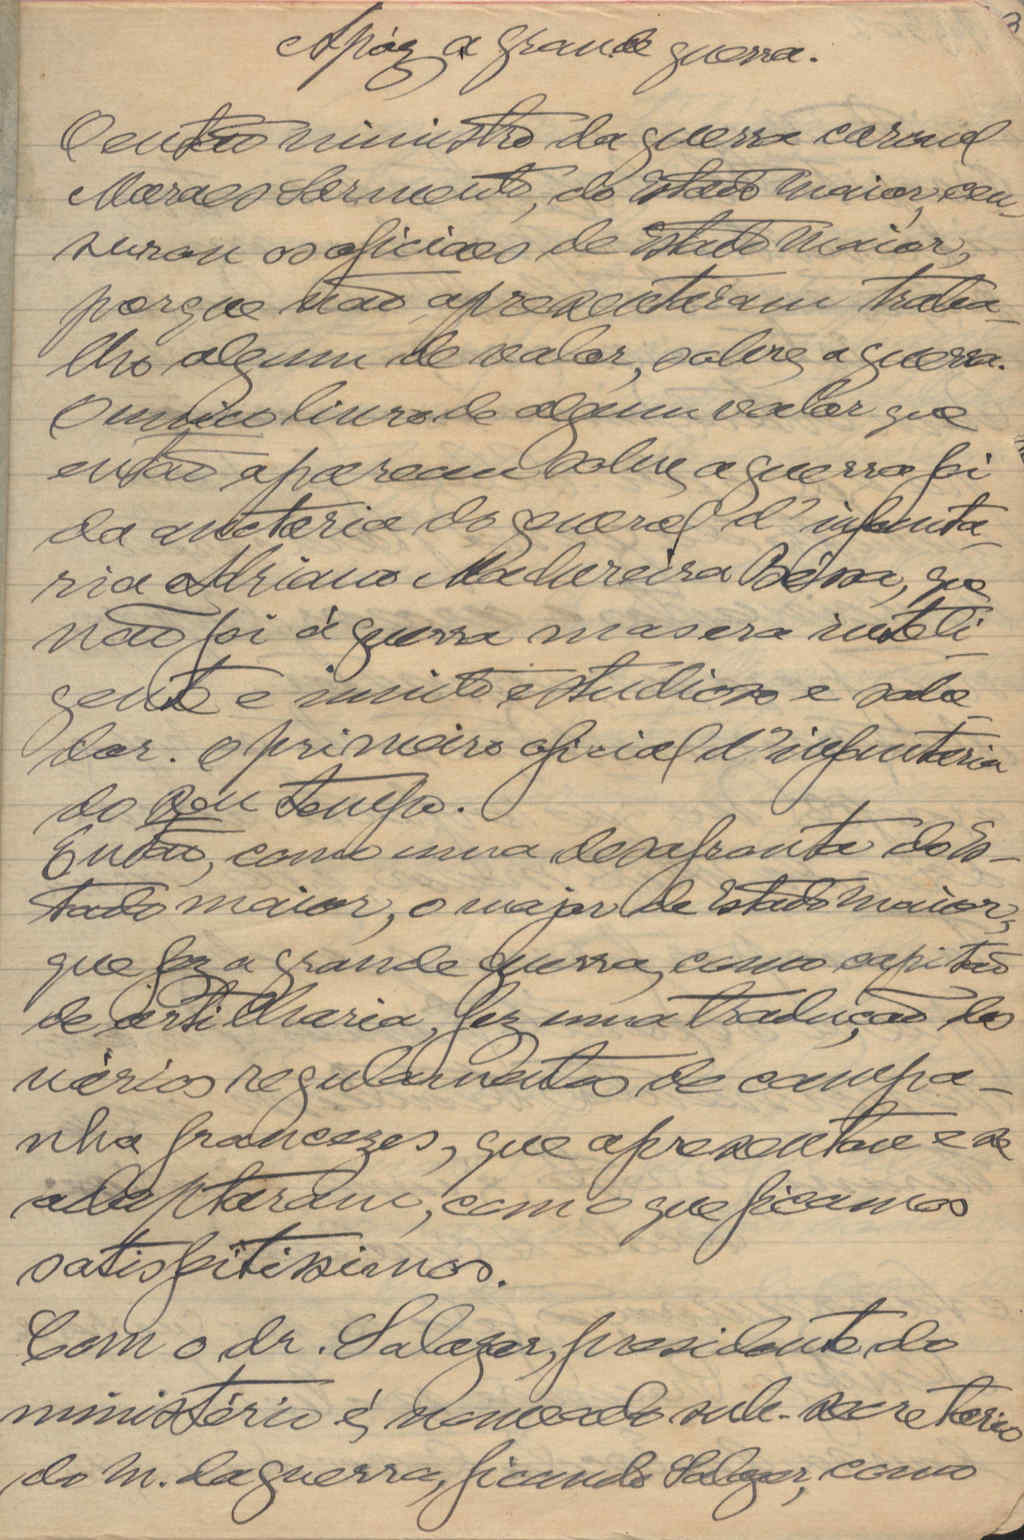 3
Apóz a grande guerra.
O então ministro da guerra coronel
Moraes Sarmento, do Estado Maior, cen-
surou os oficiaes de Estado Maior,
porque não apresentaram traba-
lho algum de valor, sobre a guerra.
O unico livro de algum valor que
então apareceu sobre a guerra foi
da auctoria do general d'infanta-
ria Adriano Madureira Beça, que
não foi á guerra mas era inteli-
gente e muito estudioso e sabe-
dor. O primeiro oficial d'infantaria
do seu tempo.
Então, como uma desafronta do Es-
tado maior, o major de Estado Maior,
que fez a grande guerra, como capitão
de artilharia, fez uma tradução dos
vários regulamentos de campa-
nha francezes, que apresentou e se
adoptaram, com o que ficamos
satisfeitissimos.
Com o dr. Salazar, presidente do
ministério é nomeado sub-secretario
do M. da guerra, ficando Salazar, como